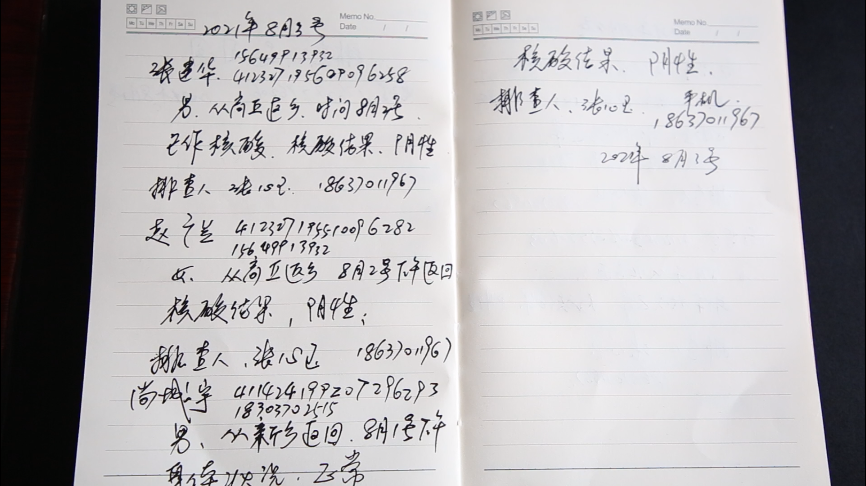 Memo No.
Date / /
Mo Tu We Th Fr Sa Su
2021年8月3号
15649913932
张建华. 412327195609096258
男. 从商丘返乡. 时间8月2号.
已作核酸. 核酸结果、阴性
排查人 张心
18637011967
赵广兰 412327195510096282
15649913932
女. 从商丘返乡 8月2号下午返回
核酸结果, 阴性;
排查人、张心 18637011967
尚城宇 411424199207296293
18303702515
男、从新乡返回. 8月1号下午
身体状况. 正常
Memo No.
Date / /
Mo Tu We Th Fr Sa Su
核酸结果. 阴性.
排查人、张心 手机.
18637011967
2021年 8月3号